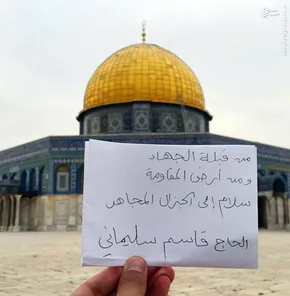 من قبلة الجهاد
ومن أرض المقاومة
سلام إلى الجنرال المجاهد
الحاج قاسم سليماني